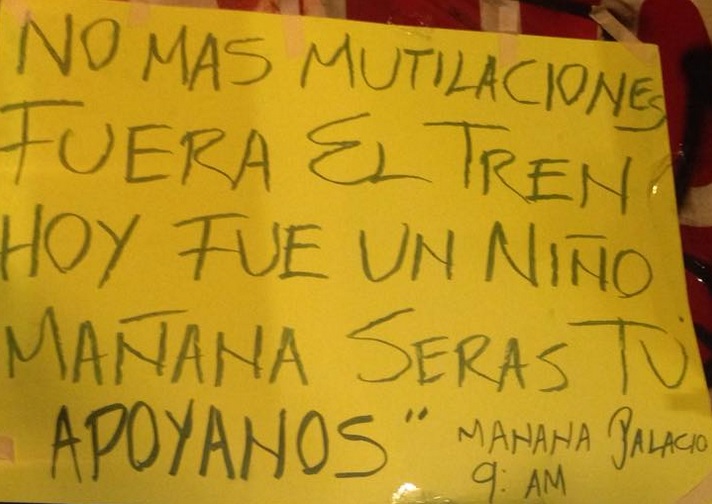 NO MAS MUTILACIONES
FUERA EL TREN
HOY FUE UN NIÑO
MAÑANA SERAS TÚ
APOYANOS" MANANA PALACIO
9: AM